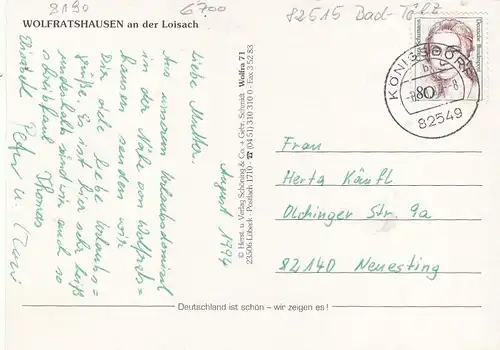 2190
6700
82515 Bad-Tölz
WOLFRATSHAUSEN an der Loisach
August 1994
Liebe Mutter.
Aus unserem Urlaubsdomizil
in der Nähe von Wolfrats=
hausen senden wir
Dir die liebe Urlaubs=
grüße. Es ist hier sehr heiß
und wir auch so
Thomas
Peter u.
© Herst. u. Verlag Schöning & Co. + Gebr. Schmidt Wolfra 71
23506 Lübeck · Postfach 1710 · ☎ (04 51) 310 310 0 · Fax 3 52 83
Deutsche Bundespost
80
KÖNIGSDORF
82549
Frau
Herta Käufl
Olchinger Str. 9a
82140 Neuesting
Deutschland ist schön – wir zeigen es!